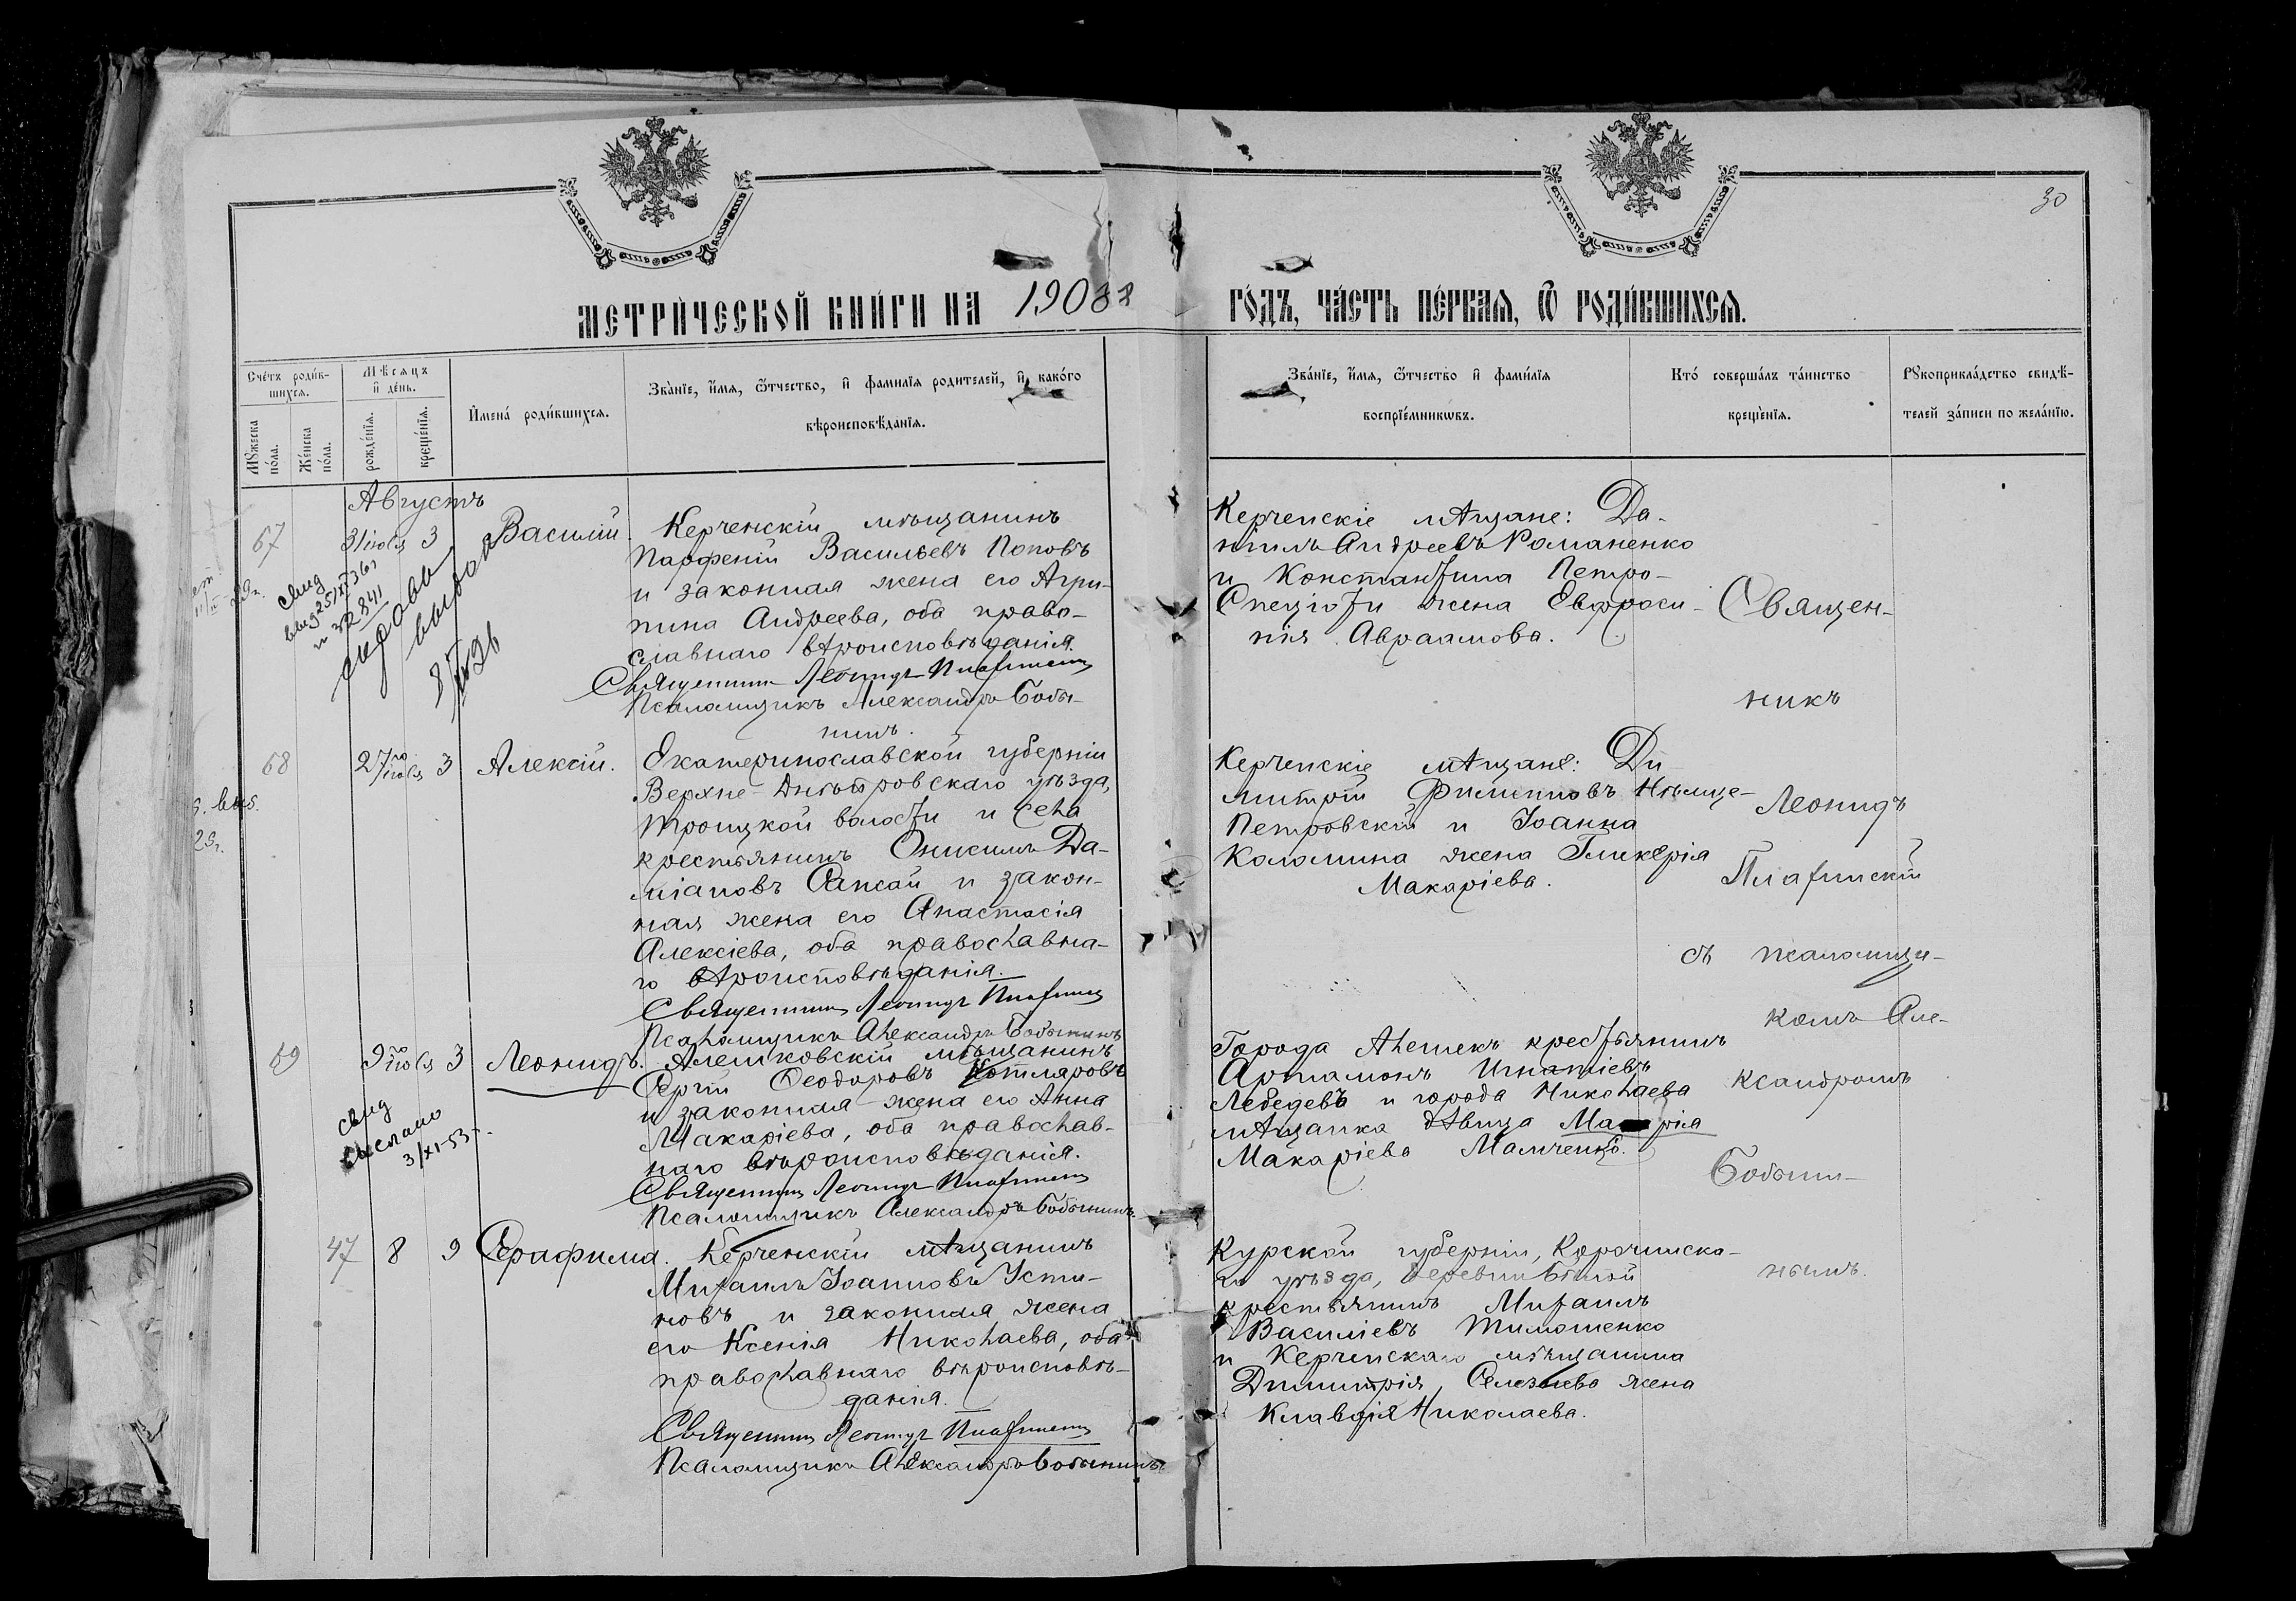 30
МЕТРИ́ЧЕСКОЙ КНИ́ГИ НА 1908
ГО́ДЪ, ЧА́СТЬ ПЕ́РВАѦ, Ѿ РОДИ́ВШИХСѦ.
Сче́тъ роди́вшихсѧ.
Мꙋ́жеска по́ла.
Же́нска по́ла.
Мѣ́сѧцъ и҆ де́нь.
рожде́нїѧ.
креще́нїѧ.
И҆мена̀ роди́вшихсѧ.
Зва́нїе, и҆́мѧ, ѻ҆́тчество, и҆ фами́лїѧ роди́телей, и҆ како́гѡ
вѣроисповѣ́данїѧ.
Зва́нїе, и҆́мѧ, ѻ҆́тчество и҆ фами́лїѧ
воспрїе́мникѡвъ.
Кто̀ соверша́лъ та́инство
креще́нїѧ.
Рꙋкоприкла́дство свидѣ́-
телей за́писи по жела́нїю.
Августъ
67
31 іюля 3
Василій.
Керченскій мѣщанинъ
Парфеній Васильевъ Поповъ
и законная жена его Агри-
пина Андреева, оба право-
славнаго вѣроисповѣданія.
Священникъ Леонидъ
Псаломщикъ Александръ Бобы-
нинъ.
Керченскіе мѣщане: Да-
ніилъ Андреевъ Романенко
и Константина Петро-
жена Евфроси-
нія Авраамова.
Священ-
никъ
Леонидъ
съ псаломщи-
комъ Але-
ксандромъ
Бобыни-
нымъ.
свид
выд 25/
68
27го іюля 3
Алексій.
Екатеринославской губерніи
Верхне-Днѣпровскаго уѣзда,
Троицкой волости и села
крестьянинъ Онисимъ Да-
міановъ и закон-
ная жена его Анастасія
Алексіева, оба православна-
го вѣроисповѣданія.
Священникъ Леонидъ
Псаломщикъ Александръ Бобынинъ
Керченскіе мѣщане: Ди-
митрій Филипповъ
Петровскій и Іоанна
Коломина жена Гликерія
Макаріева.
69
9го іюля 3
Леонидъ.
Алешковскій мѣщанинъ
Сергій Ѳеодоровъ Котляровъ
и законная жена его Анна
Макаріева, оба православ-
наго вѣроисповѣданія.
Священникъ Леонидъ
Псаломщикъ Александръ Бобынинъ.
Города Алешекъ крестьянинъ
Артамонъ Игнатіевъ
Лебедевъ и города Николаева
мѣщанка дѣвица Марія
Макаріева Мамченко.
свид
выслано
3/XI-53 г.
47 8 9
Серафима.
Керченскій мѣщанинъ
Михаилъ Іоанновъ Усти-
новъ и законная жена
его Ксенія Николаева, оба
православнаго вѣроисповѣ-
данія.
Священникъ Леонидъ
Псаломщикъ Александръ Бобынинъ
Курской губерніи, Корочинска-
го уѣзда, деревни
крестьянинъ Михаилъ
Василіевъ Тимошенко
и Керченскаго мѣщанина
Димитрія жена
Клавдія Николаева.